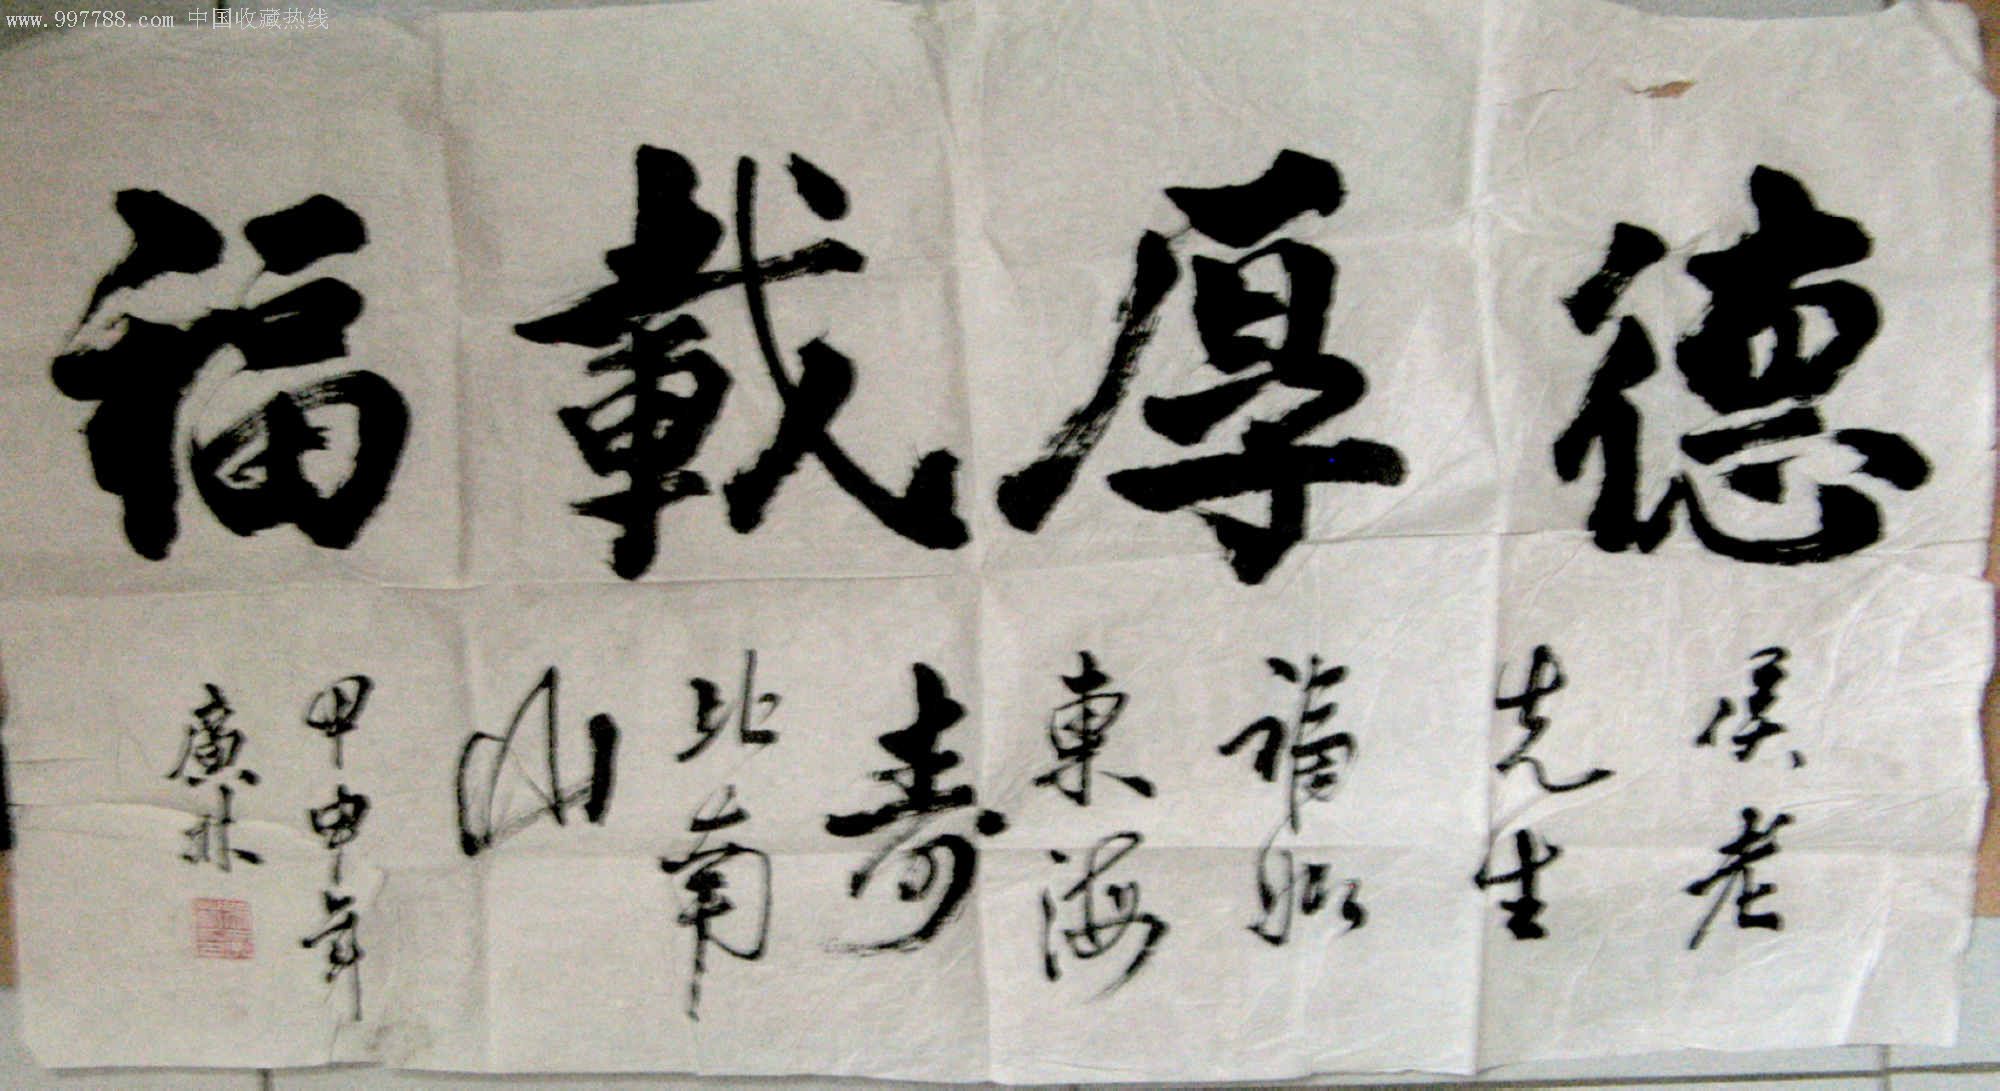 www.997788.com 中国收藏热线
德厚載福
侯老
先生
福如
東海
壽
比南
山
甲申年
廣林